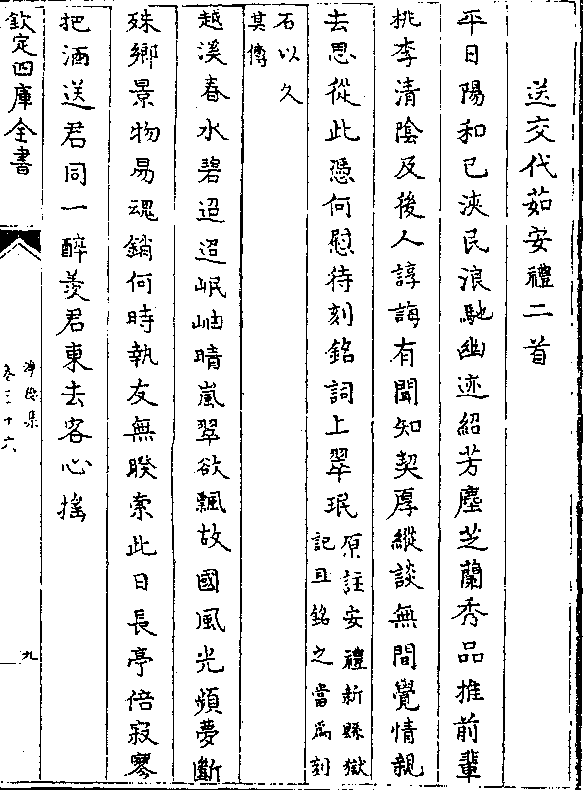 送交代茹安禮二首
平日陽和已浹民浪馳幽迹紹芳塵芝蘭秀品推前輩
桃李清陰及後人諄誨有聞知契厚縱談無間覺情親
去思從此憑何慰待刻銘詞上翠珉原註安禮新縣獄
記且銘之當為刻
石以久
其傳
越溪春水碧迢迢岷岫晴嵐翠欲飄故國風光頻夢斷
殊鄉景物易魂銷何時執友無暌索此日長亭倍寂寥
把酒送君同一醉羨君東去客心搖
欽定四庫全書
淨德集
卷三十六
九